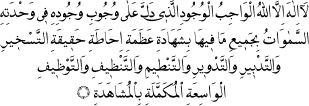 لَا اِلٰهَ اِلَّا اللّٰهُ الْوَاجِبُ الْوُجُودِ الَّذِى دَلَّ عَلٰى وُجُوبِ وُجُودِهِ فِى وَحْدَتِهِ
السَّمٰوَاتُ بِجَمِيعِ مَا فِيهَا بِشَهَادَةِ عَظَمَةِ اِحَاطَةِ حَقِيقَةِ التَّسْخِيرِ
وَالتَّدْبِيرِ وَالتَّدْوِيرِ وَالتَّنْظِيمِ وَالتَّنْظِيفِ وَالتَّوْظِيفِ
الْوَاسِعَةِ الْمُكَمَّلَةِ بِالْمُشَاهَدَةِ ۞